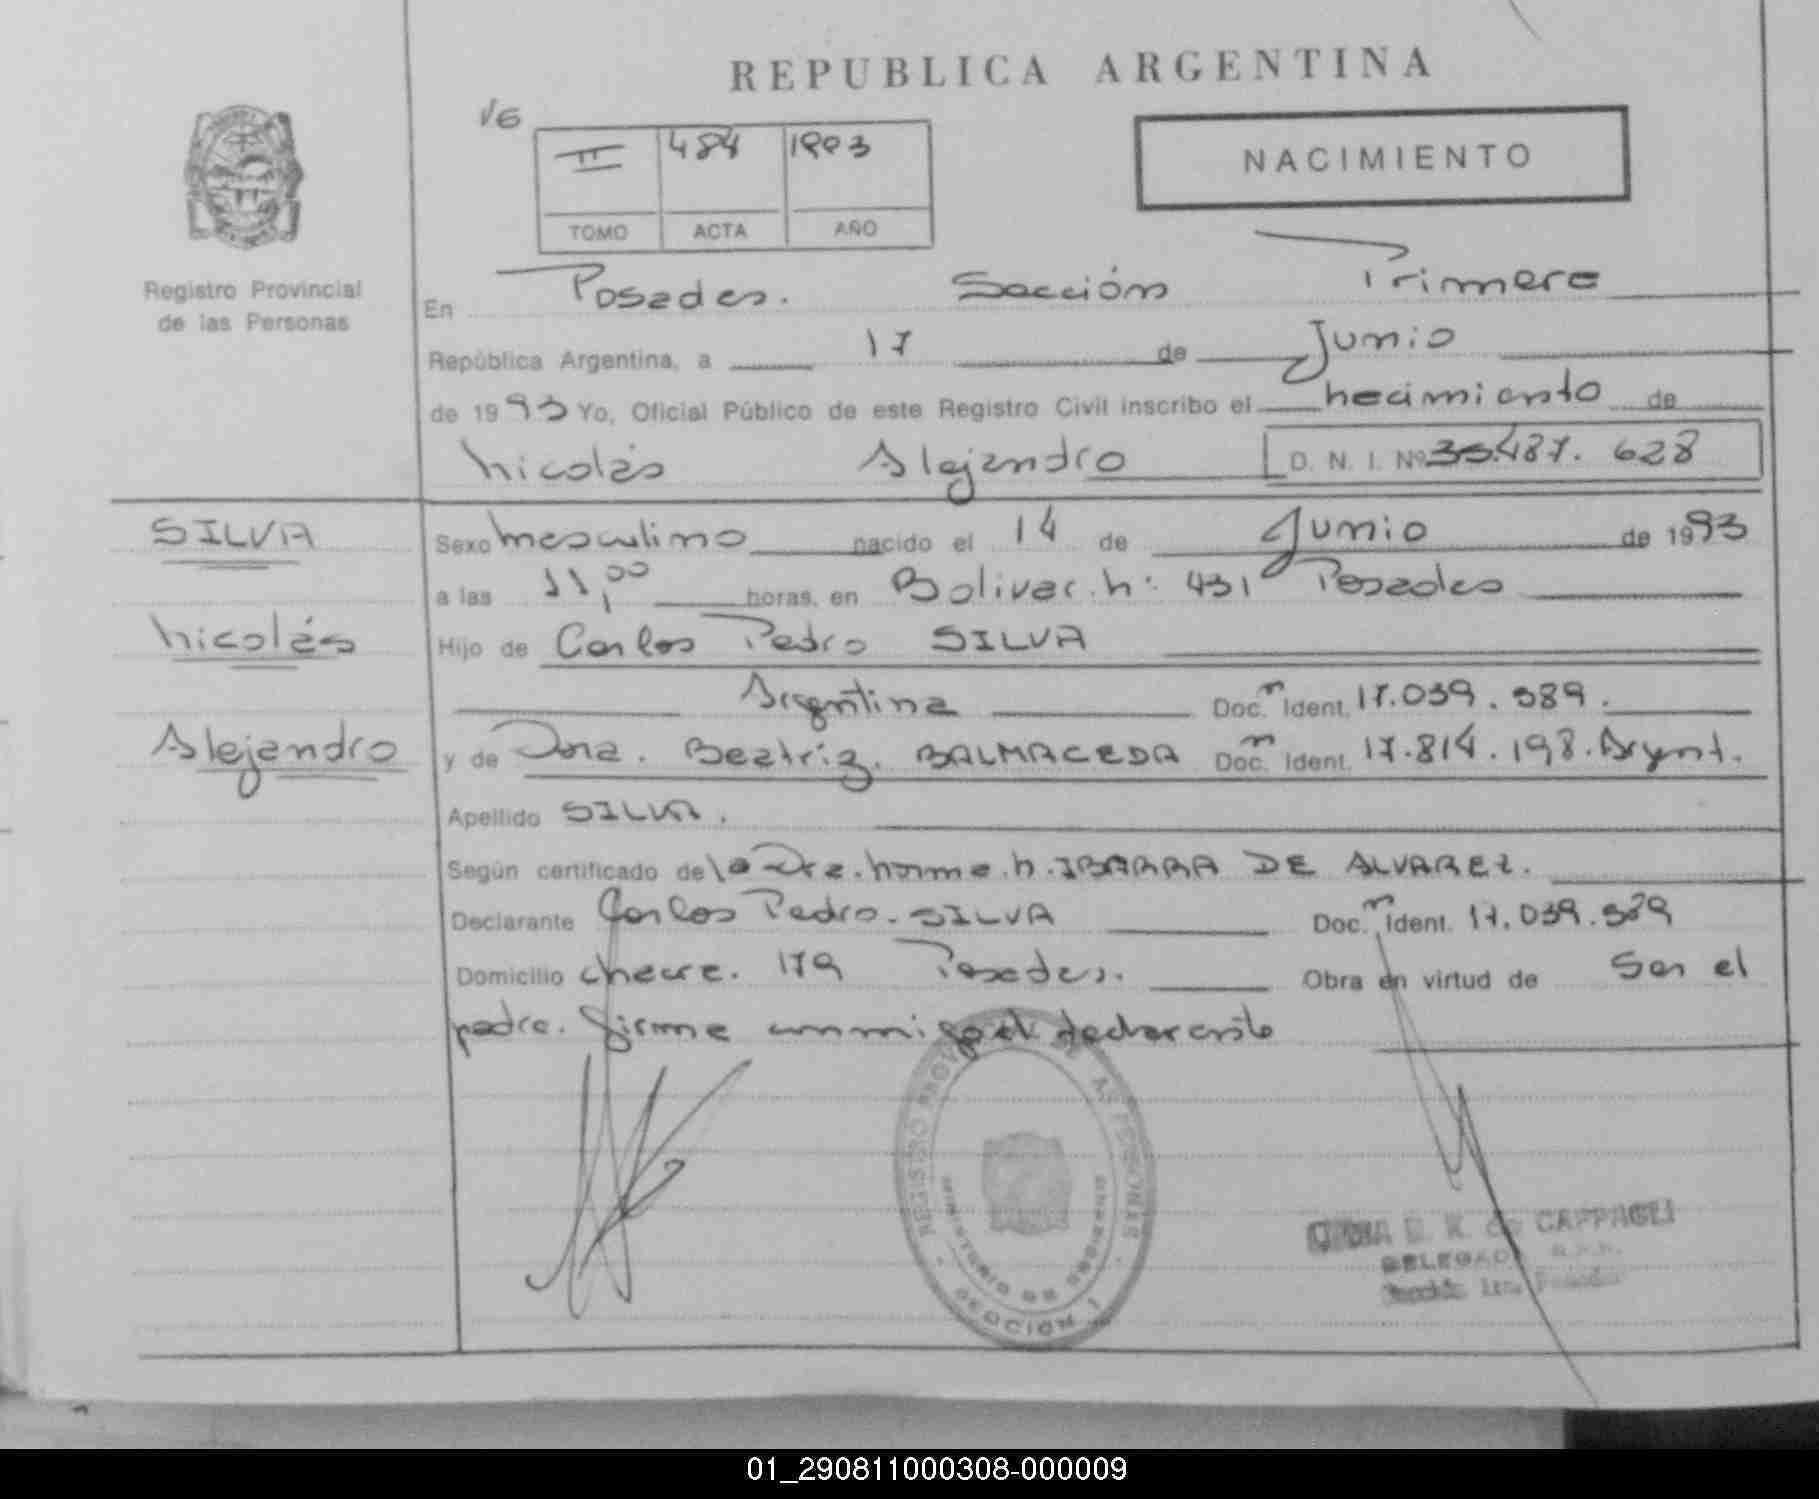 REPUBLICA ARGENTINA
VG
II 484 1993
TOMO ACTA AÑO
NACIMIENTO
Registro Provincial
de las Personas
En Posadas. Sección Primera
República Argentina, a 17 de Junio
de 1993 Yo, Oficial Público de este Registro Civil inscribo el nacimiento de
Nicolás Alejandro D. N. I. Nº 487. 628
SILVA
Nicolás
Alejandro
Sexo masculino nacido el 14 de Junio de 1993
a las 11,00 horas, en Bolivar. N: 431 Posadas
Hijo de Carlos Pedro SILVA
Argentina Doc. n Ident. 17.039.389.
y de Dna. Beatriz. BALMACEDA Doc. n Ident. 17.814.198. Argent.
Apellido SILVA.
Según certificado de la Dra. Norma. N. IBARRA DE ALVAREZ.
Declarante Carlos Pedro. SILVA Doc. n Ident. 17.039.389
Domicilio 179 Posadas. Obra en virtud de Ser el
padre. Firma conmigo el declarante
REGISTRO PROV DE LAS PERSONAS
MINISTERIO DE GOBIERNO
SECCION 1
DE CAPPAGLI
DELEGADA R.P.P.
01_290811000308-000009